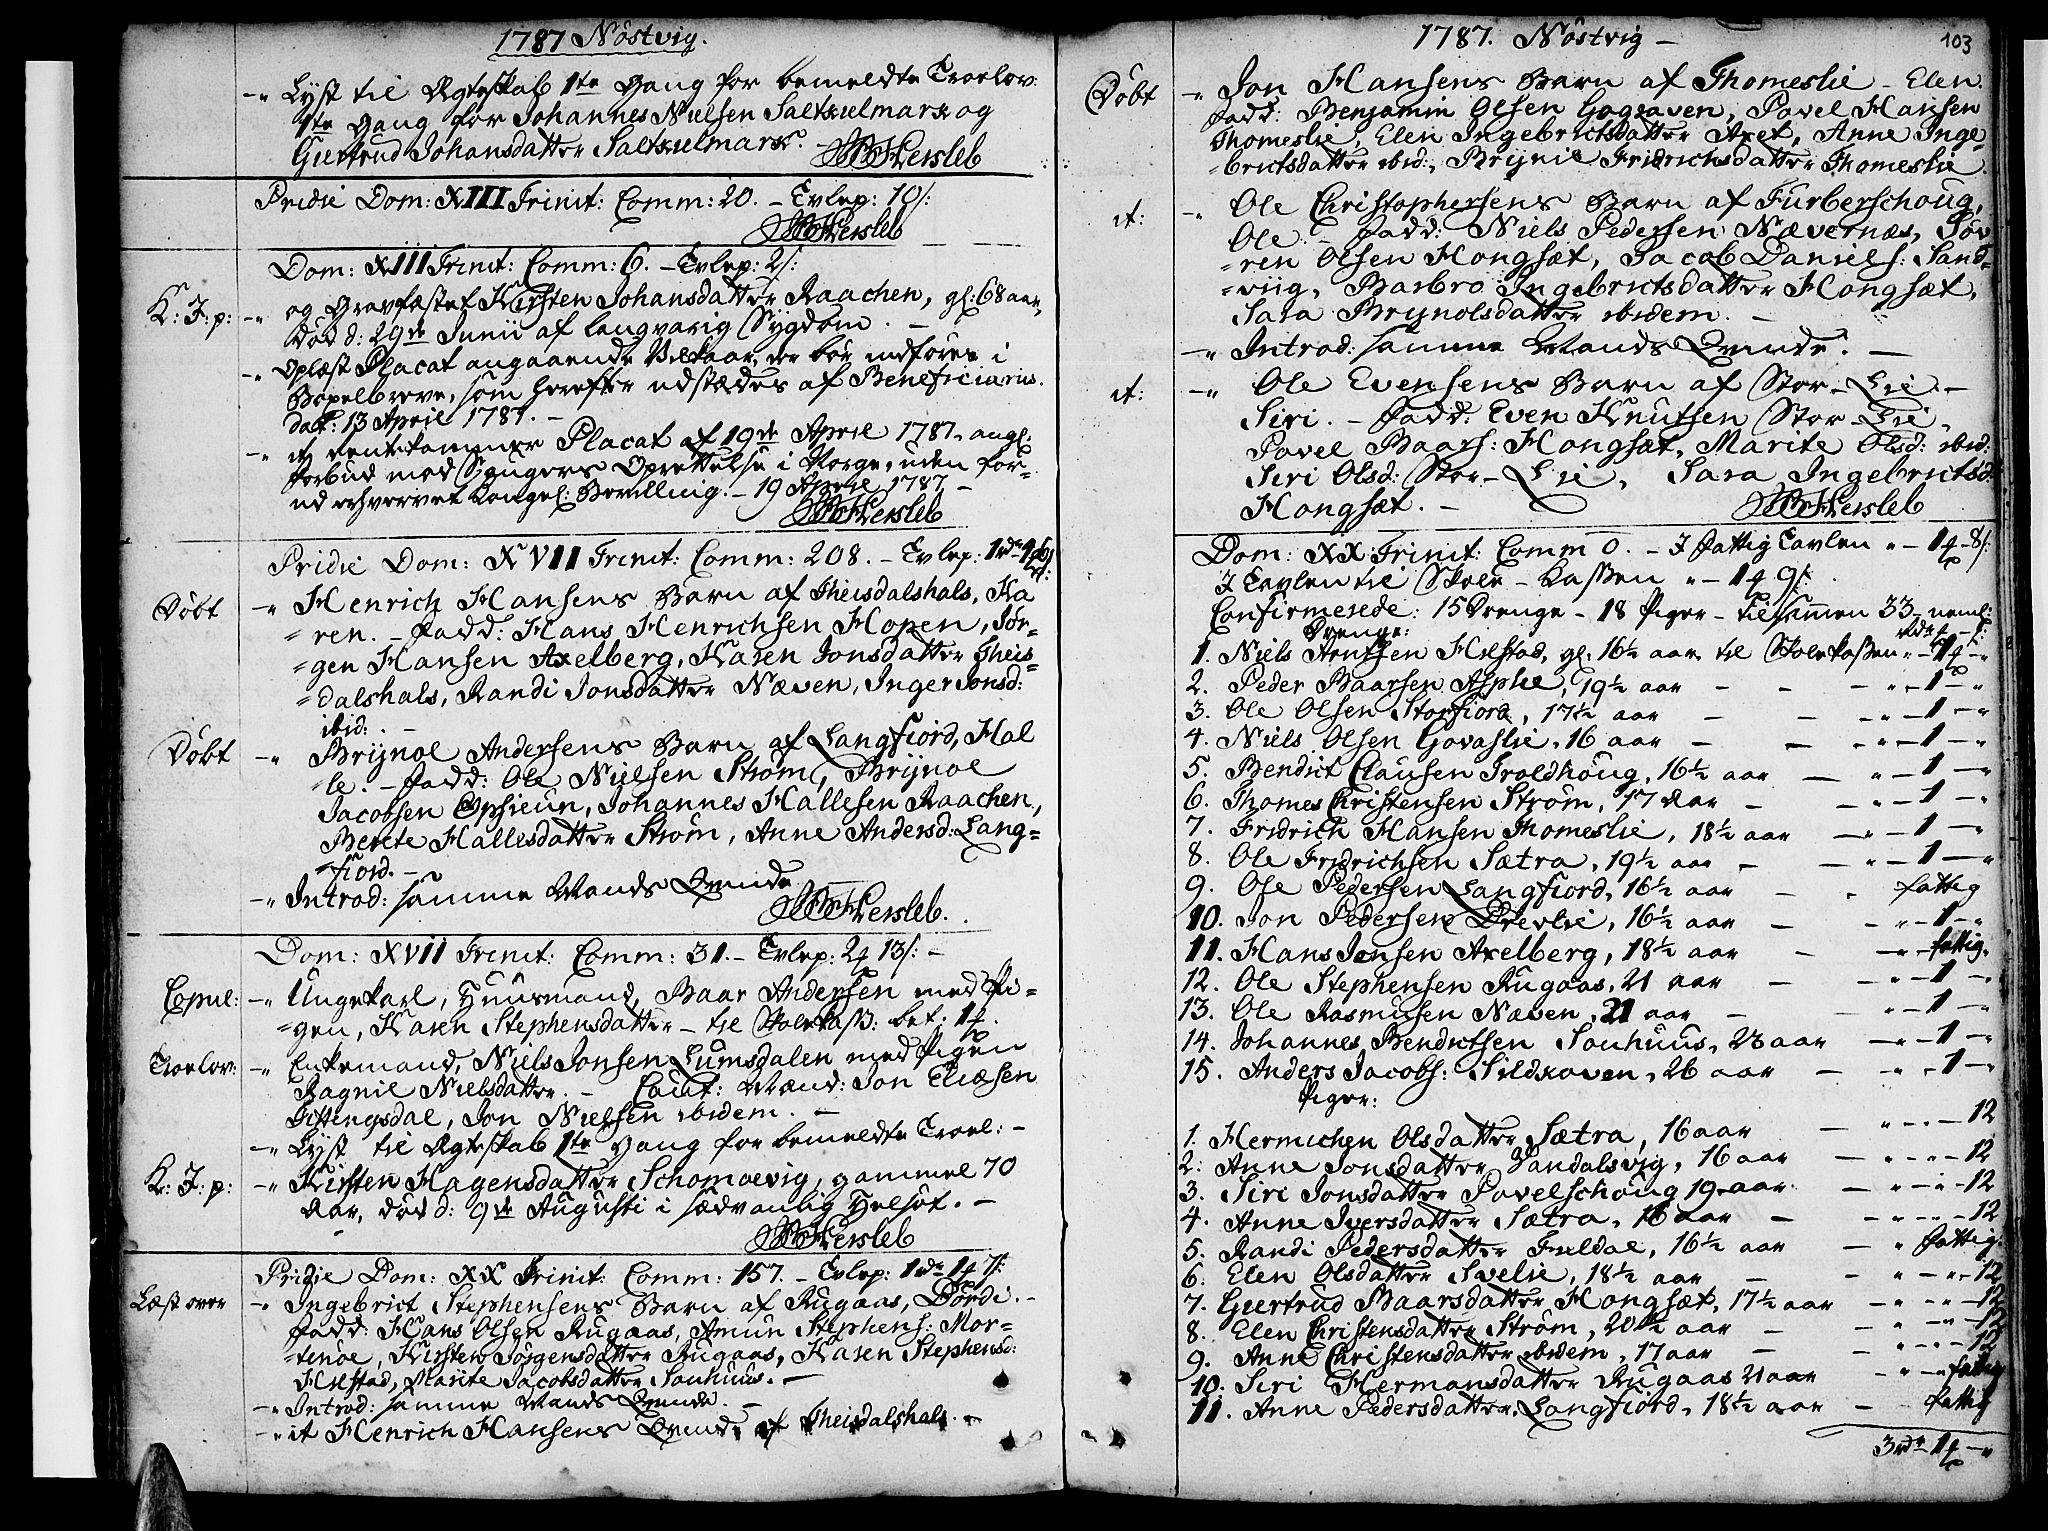 1787 Nöstvig.
-" Lyst til Ægteskab 1te Gang for bemeldte Troelov:
1te Gang for Johannes Nielsen Saltkielmark og
Giertrud Johansdatter Saltkielmark. -
Hersleb
Pridie Dom: XIII Trinit: Comm: 20. - Tvlep: 10/:
Hersleb
Dom: XIII Trinit: Comm: 6. - Tvlep: 2/:
K: J: p: -" og Gravfæstet Kirsten Johansdatter Raachen, gl: 68 aar,
Død d: 29de Junii af langvarig Sygdom. -
-" Oplæst Placat angaaende Vilkaar, der bör indföres i
Bøxelbreve, som herefter udstædes af Beneficiarus.
dat: 13 April 1787. -
-" it Rentekammer Placat af 19de April 1787. angl:
forbud mod Saugers Oprettelse i Norge, uden for-
ud erhvervet Kongel: Bevilling. - 19 April 1787. -
Hersleb
Pridie Dom: XVII Trinit: Comm: 208. - Tvlep: 1rdr
Döbt -" Henrich Hansens Barn af Theisdalshals, Ka
=ren. - Fadd: Hans Henrichsen Hopen, Jör=
=gen Hansen Axelberg, Karen Jonsdatter Theis=
=dalshals, Randi Jonsdatter Næven, Inger Jonsd:
ibid: -
Döbt -" Brynol Andersens Barn af Langfiord, Hal
=le. - Fadd: Ole Nielsen Ström, Brynol
Jacobsen Opsieun, Johannes Hallesen Raachen,
Berete Hallesdatter Ström, Anne Andersd: Lang=
=fiord. -
-" Introd: samme Mands Qvinde
Hersleb.
Dom: XVII Trinit: Comm: 31. - Tvlep: 2 13/: -
Copul: -" Ungekarl, Huusmand, Baar Andersen med Pi=
=gen, Karen Stephensdatter - til Skolekass: bet. 1
Troelov: -" Enkemand, Niels Jonsen Lumsdalen med Pigen
Ragnil Nielsdatter. - Caut: Mænd: Jon Eliæsen
Giftingsdal, Jon Nielsen ibidem. -
-" Lyst til Ægteskab 1te Gang for bemeldte Troel: -
K: J: p: -" Kirsten Hagensdatter Schomaevig, gammel 70
Aar, död d: 9de Augusti i sædvanlig Helsot. -
Hersleb
Pridie Dom: XX Trinit: Comm: 157. - Tvlep: 1rdr 1 7/:
Læst over -" Ingebrict Stephensens Barn af Rugaas, Dördi. -
Fadd: Hans Olsen Rugaas, Amun Stephens: Mor=
=tenöe, Kirsten Jörgensdatter Rugaas, Karen Stephensd:
Hilstad, Marite Jacobsdatter Sauhuus. -
-" Introd: samme Mands Qvinde. -
-" it Henrich Hansens Qvinde af Theisdalshals. -
1787. Nöstvig -
103
Döbt -" Jon Hansens Barn af Thomeslie - Elen.
Fadd: Benjamin Olsen Gograven, Pavel Hansen
Thomeslie, Elen Ingebrictsdatter Axet, Anne Inge=
=brictsdatter ibid:, Brynil Fridrichsdatter Thomeslie.
it: -" Ole Christophersens Barn af Furberschoug,
Ole. - Fadd: Niels Pedersen Nævernæs, Sör
=ren Olsen Hongsæt, Jacob Daniels: Sand=
=viig, Barbro Ingebrictsdatter Hongsæt,
Sara Brynolsdatter ibidem. -
-" Introd: samme Mands Qvinde. -
it: -" Ole Evensens Barn af Stor-Lie. -
Siri. - Fadd: Even Knutsen Stor-Lie,
Pavel Baars: Hongsæt, Marite Olsd: ibid:
Siri Olsd: Stor-Lie, Sara Ingebrictsd:
Hongsæt. -
Hersleb
Dom: XX Trinit: Comm 0. - I fattig Tavlen " - 1 - 8/:
I Tavlen til Skole-Kassen " - 1 9/:
Confirmerede: 15 Drenge - 18 Piger - tilsamen 33 - neml:
Drenge:
1. Niels Arntsen Hilstad, gl: 16½ aar, til Skolekassen " - 1 - "
2. Peder Baarsen Asplie, 19½ aar - - - " - 1 - "
3. Ole Olsen Storfiord, 17½ aar - - - " - 1 - "
4. Niels Olsen Govaslie, 16 aar - - - " - 1 - "
5. Bendict Clausen Troldhoug, 16½ aar - " - 1 - "
6. Thomes Christensen Ström, 17 Aar - - " - 1 - "
7. Fridrich Hansen Thomeslie, 18½ aar - " - 1 - "
8. Ole Fridrichsen Sætra, 19½ aar - - " - 1 - "
9. Ole Pedersen Langfiord, 16½ aar - - fattig
10. Jon Pedersen Drevlie, 16½ aar - - " - 1 - "
11. Hans Jensen Axelberg, 18½ aar - - " - fattig.
12. Ole Stephensen Rugaas, 21 aar - - " - 1 - "
13. Ole Rasmusen Næven, 21 aar - - " - 1 - "
14. Johannes Bendictsen Sauhuus, 23 aar - " - 1 - "
15. Anders Jacobs: Sildkoven, 26 aar - " - 1 - "
Piger:
1. Hermichen Olsdatter Sætra, 16 aar - " - " - 12
2: Anne Jonsdatter Vandalsvig, 16 aar - " - " - 12
3. Siri Jonsdatter Povelschoug 19 aar - " - " - 12
4. Anne Iversdatter Sætra, 16 aar - - " - " - 12
5. Randi Pedersdatter Fuldal, 16½ aar - " fattig.
6. Elen Olsdatter Svelie, 18½ aar - - " - " - 12
7. Giertrud Baarsdatter Hongsæt, 17½ aar - " - " - 12
8. Elen Christensdatter Ström, 20½ aar - - " - " - 12
9. Anne Christensdatter ibidem, 17 aar - - " - " - 12
10. Siri Hermansdatter Rugaas 21 aar - " - " - fattig
11. Anne Pedersdatter, Langfiord, 18½ aar - fattig
3rdr 1 - "